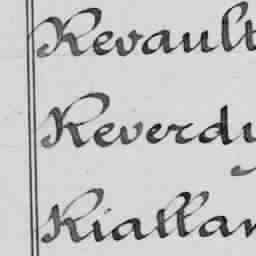 Revault
Reverdy
Riallan